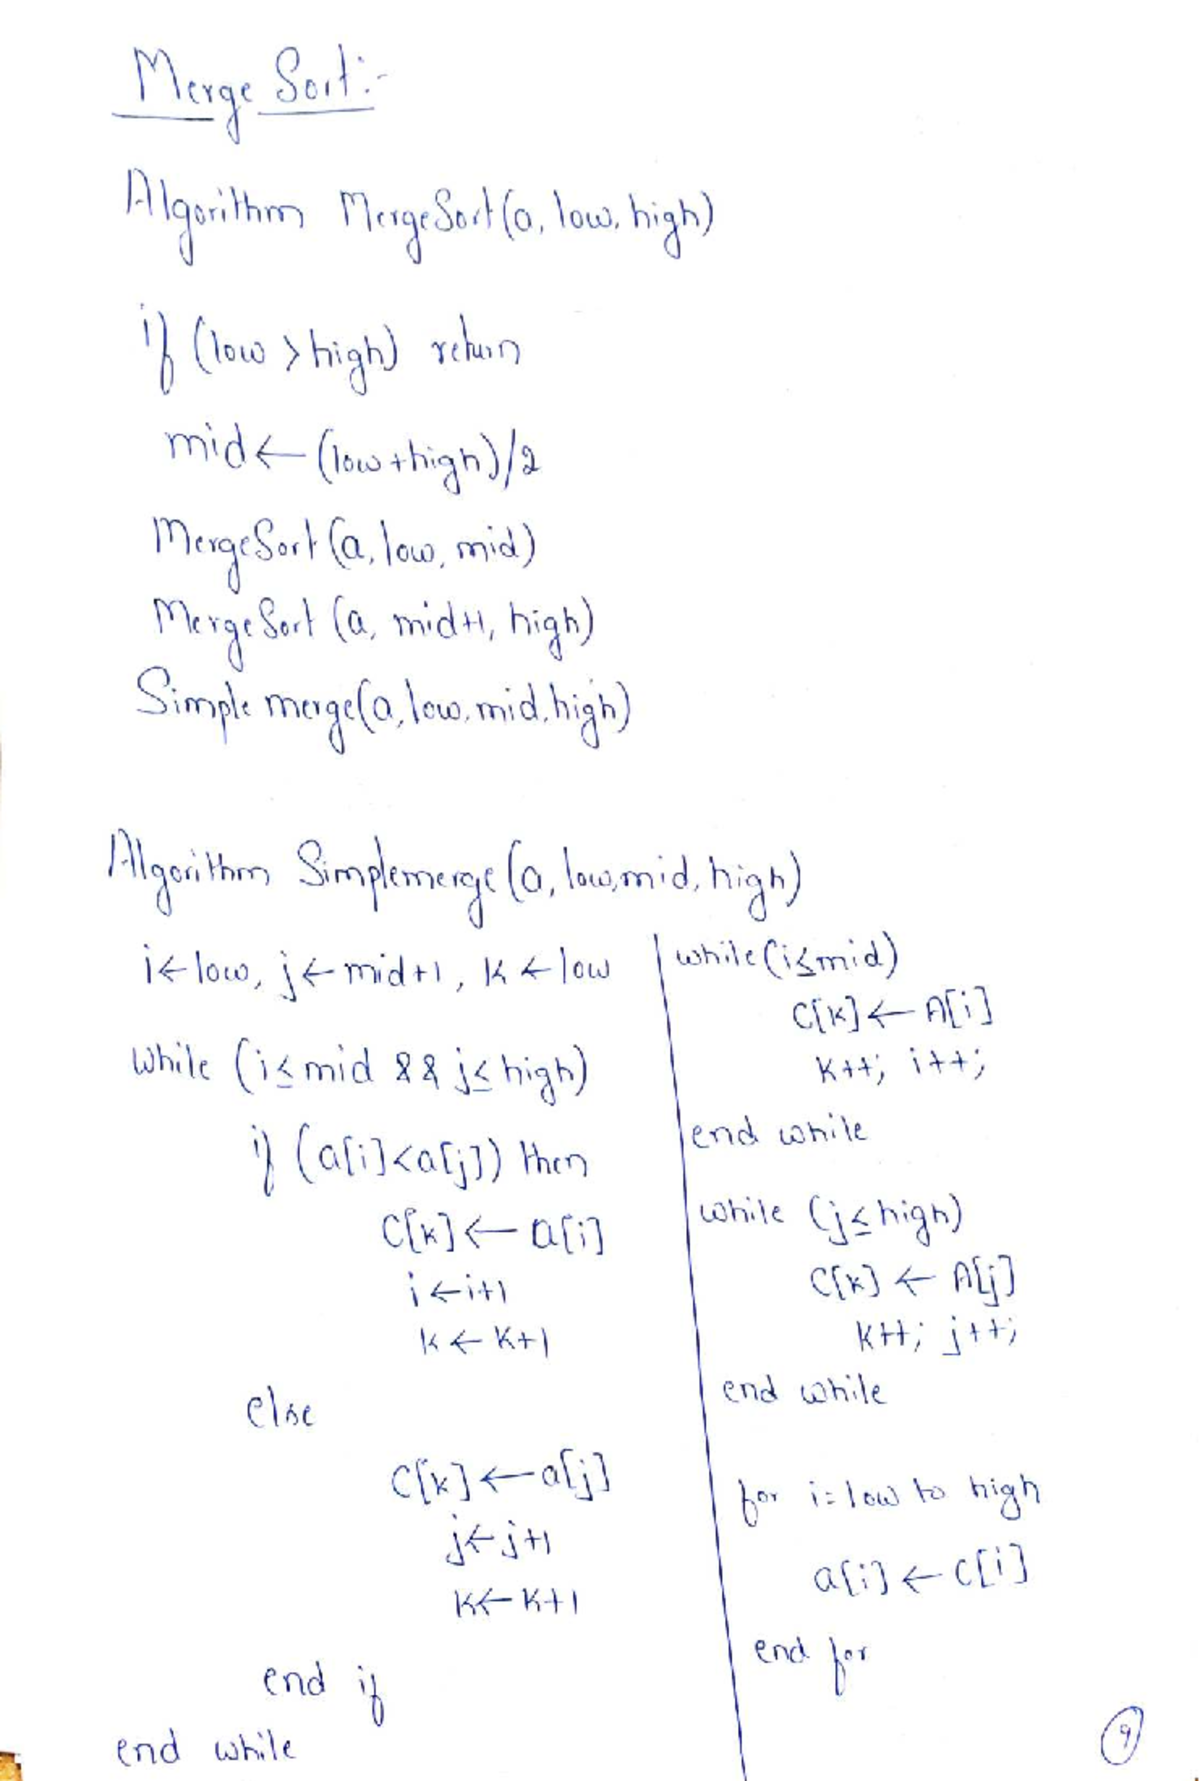 Merge Sort:-
Algorithm MergeSort(a, low, high)
if (low > high) return
mid ← (low+high)/2
MergeSort (a, low, mid)
MergeSort (a, mid+1, high)
Simple merge(a, low, mid, high)
Algorithm Simplemerge (a, low, mid, high)
i ← low, j ← mid+1, k ← low
while (i ≤ mid && j ≤ high)
if (a[i] < a[j]) then
C[k] ← a[i]
i ← i+1
k ← k+1
else
C[k] ← a[j]
j ← j+1
k ← k+1
end if
end while
while (i ≤ mid)
C[k] ← A[i]
k++; i++;
end while
while (j ≤ high)
C[k] ← A[j]
k++; j++;
end while
for i = low to high
a[i] ← C[i]
end for
9